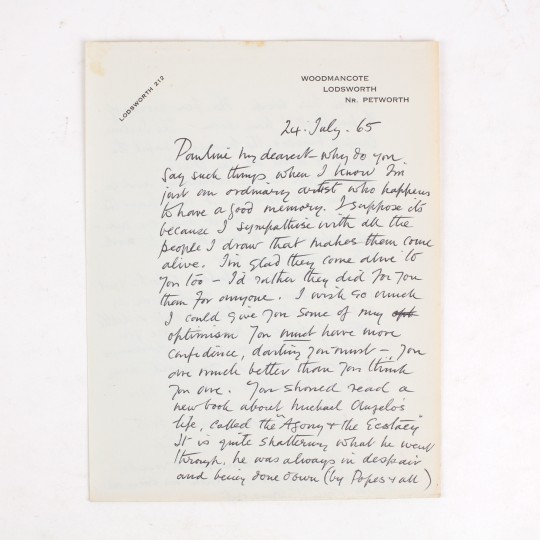 LODSWORTH 212
WOODMANCOTE
LODSWORTH
NR. PETWORTH
24. July. 65
Pauline my dearest – why do you
say such things when I know I'm
just an ordinary artist who happens
to have a good memory. I suppose its
because I sympathise with all the
people I draw that makes them come
alive. I'm glad they come alive to
you too – I'd rather they did for you
then for anyone. I wish so much
I could give you some of my opt
optimism you must have more
confidence, darling you must – you
are much better than you think
you are. You should read a
new book about Michael Angelo's
life, called the "Agony & the Ecstasy"
It is quite shattering what he went
through, he was always in despair
and being done down (by Popes & all)